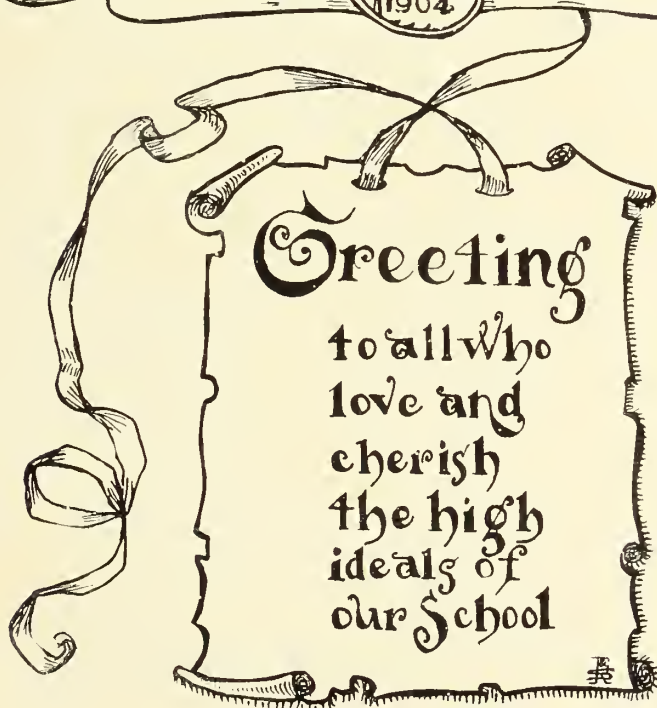 1904
Greeting
to all who
love and
cherish
the high
ideals of
our School